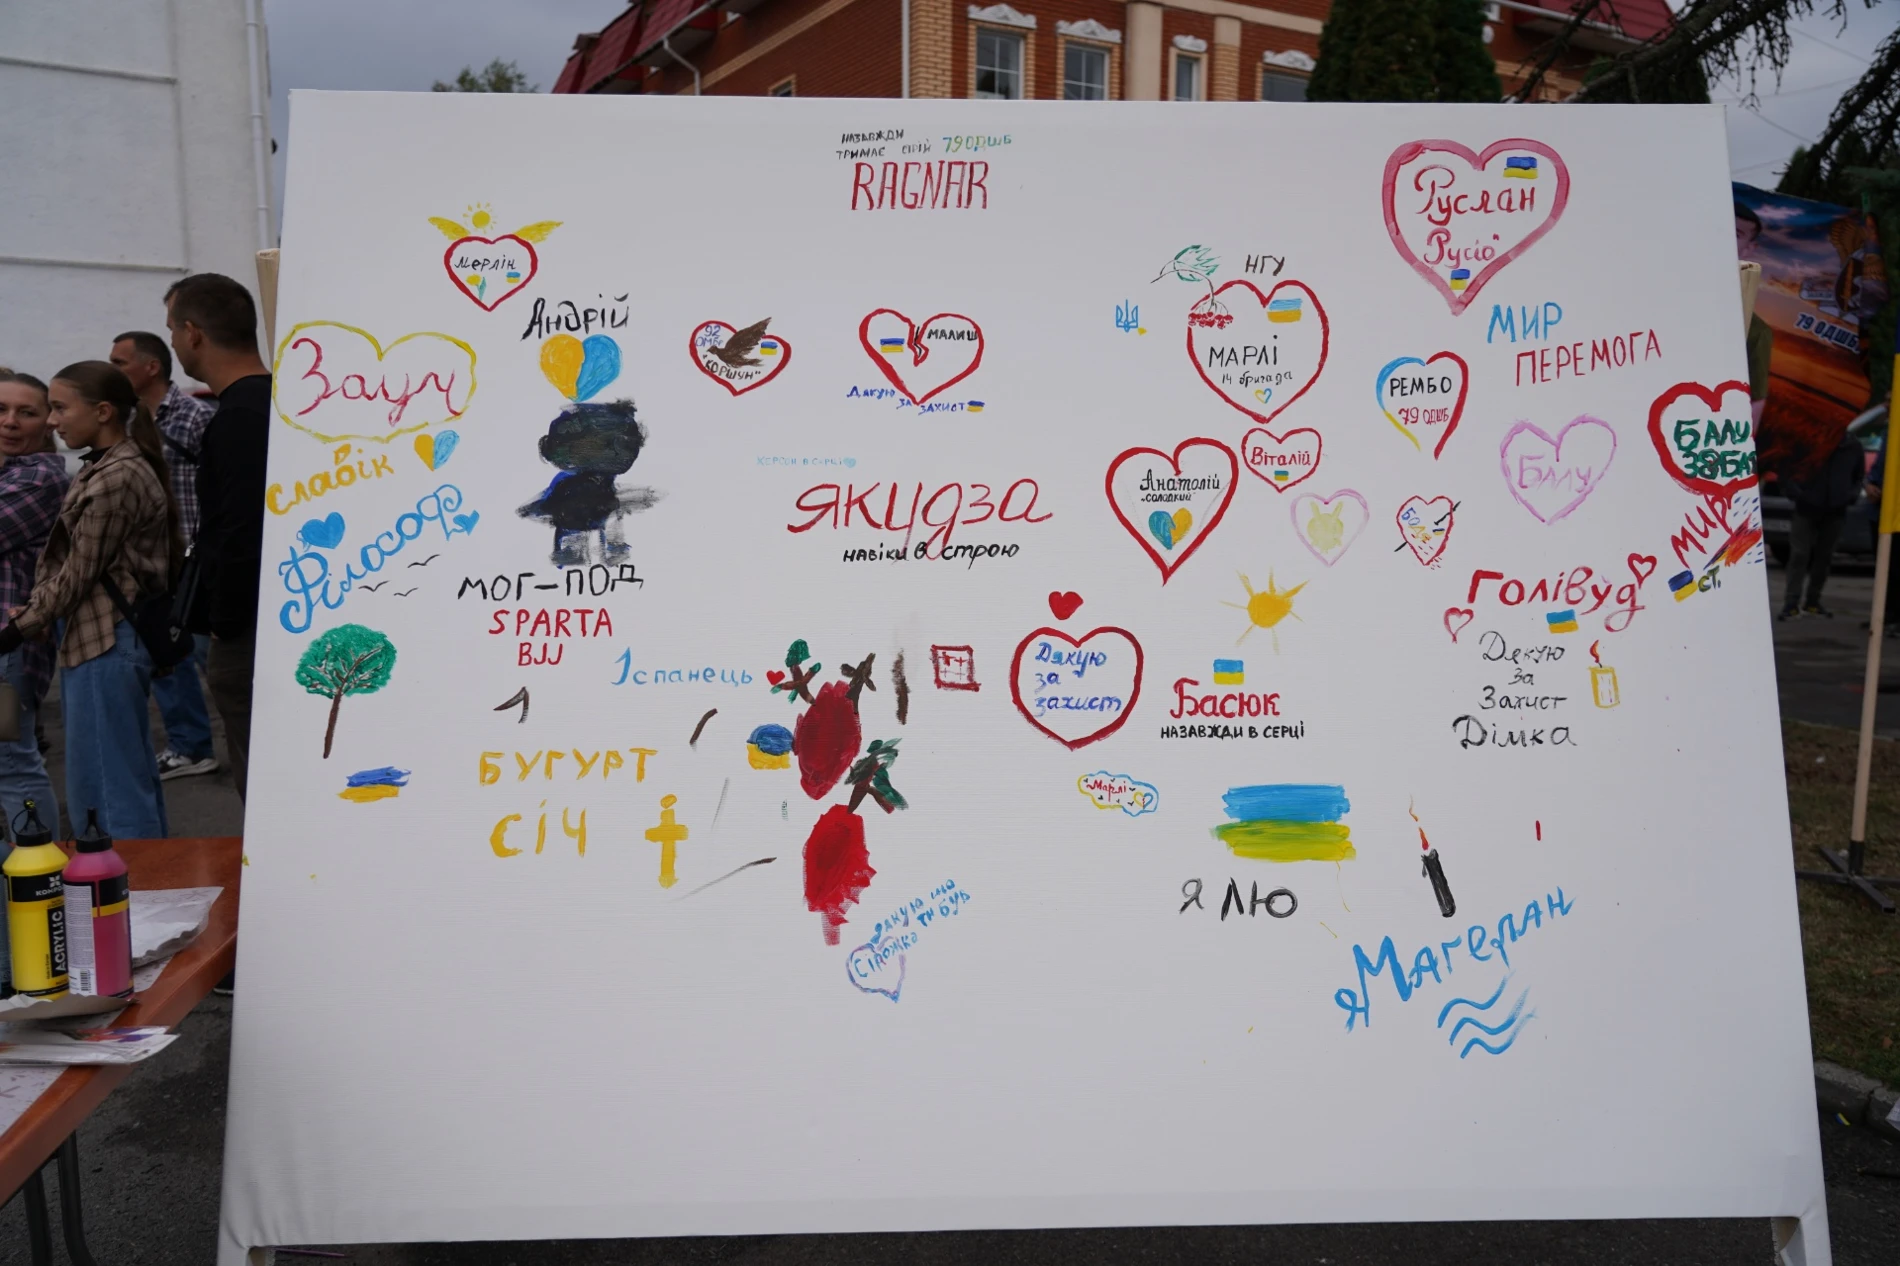 НАЗАВЖДИ
ТРИМАЄ СТРІЙ 79 ОДШБ
RAGNAR
Руслан
Русіо"
мерлін
НГУ
Андрій
МАРЛІ
14 бригада
МИР
ПЕРЕМОГА
92
ОМБр
"КОРШУН"
МАЛИШ
Дякую
ЗА
ЗАХИСТ
Завуч
РЕМБО
79 ОДШБ
БАЛУ
БАЛУ
МИР
СТ.
славік
ХЕРСОН В СЕРЦІ
ЯКУДЗА
навіки в строю
Віталій
Анатолій
"Солодкий"
Філософ
МОГ-ПОД
SPARTA
BJJ
Голівуд
Дякую
за
Захист
Дімка
Іспанець
Дякую
за
захист
Басюк
НАЗАВЖДИ В СЕРЦІ
БУГУРТ
СІЧ
Марлі
Я ЛЮ
дякую що
ти був
Сірожка
я Магелан
79 ОДШБ
ACRYLIC